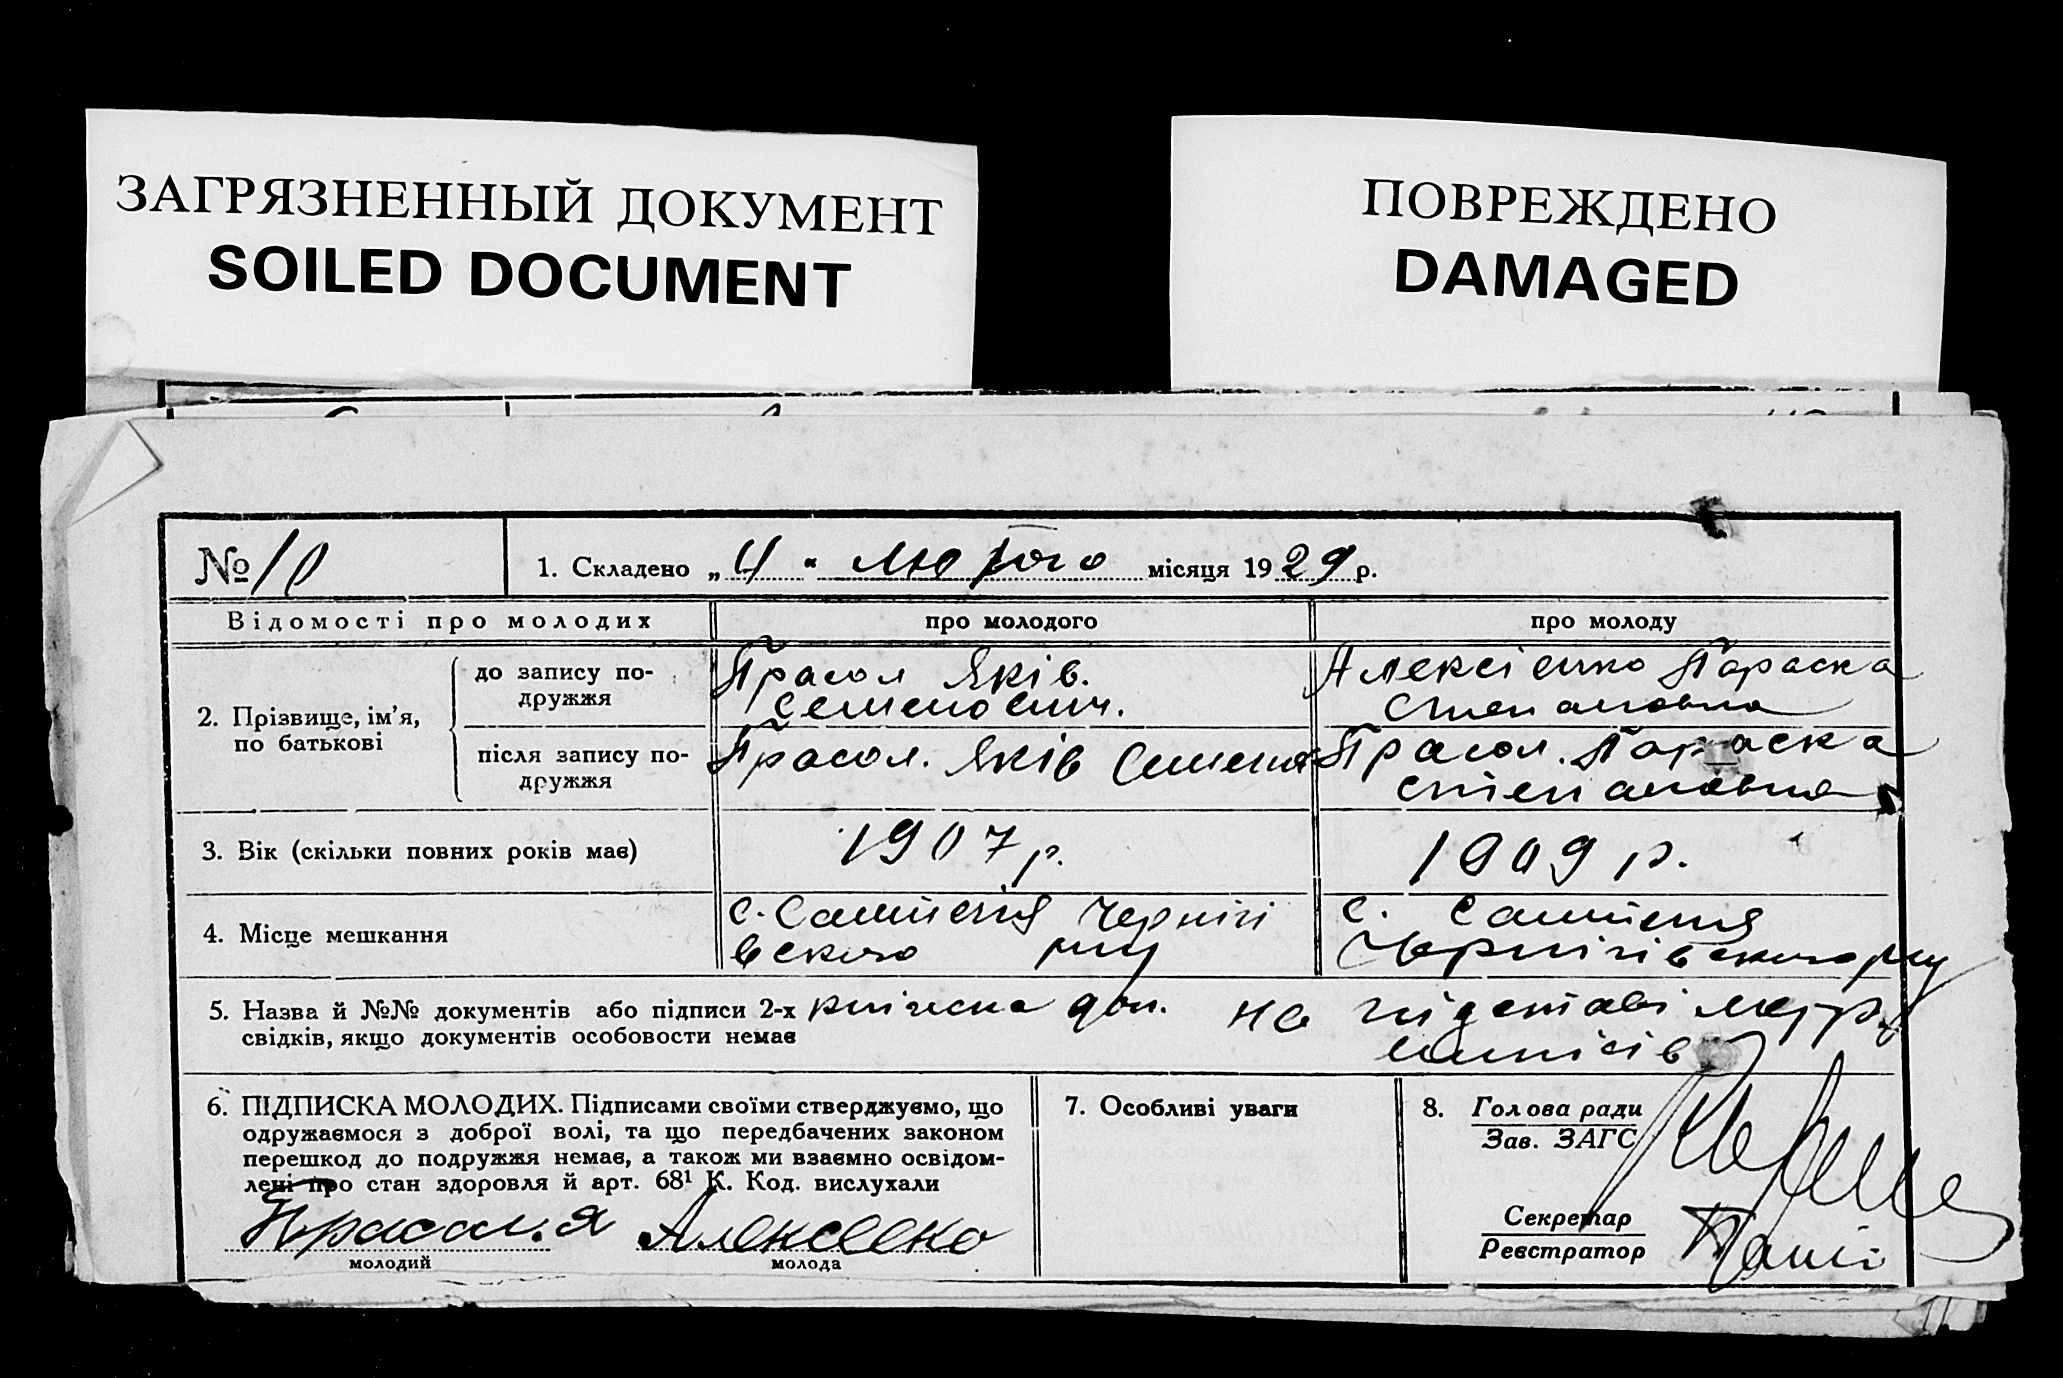 ЗАГРЯЗНЕННЫЙ ДОКУМЕНТ
SOILED DOCUMENT
ПОВРЕЖДЕНО
DAMAGED
№ 10
1. Складено „ 4 " лютого місяця 1929 р.
Відомості про молодих
про молодого
про молоду
2. Прізвище, ім'я,
по батькові
до запису по-
дружжя
Прасол Яків.
Семенович.
Алексієнко Параска
Степановна
після запису по-
дружжя
Прасол. Яків Семенов
Прасол. Параска
Степановна
3. Вік (скільки повних років має)
1907 р.
1909 р.
4. Місце мешкання
с.
Чернігі
вского р-ну
с.
Чернігівского р-ну
5. Назва й №№ документів або підписи 2-х
свідків, якщо документів особовости немає
на підставі
6. ПІДПИСКА МОЛОДИХ. Підписами своїми стверджуємо, що
одружаємося з доброї волі, та що передбачених законом
перешкод до подружжя немає, а також ми взаємно освідом-
лені про стан здоровля й арт. 68¹ К. Код. вислухали
Прасол. Я
молодий
Алексеенко
молода
7. Особливі уваги
8. Голова ради
Зав. ЗАГС
Секретар
Реєстратор